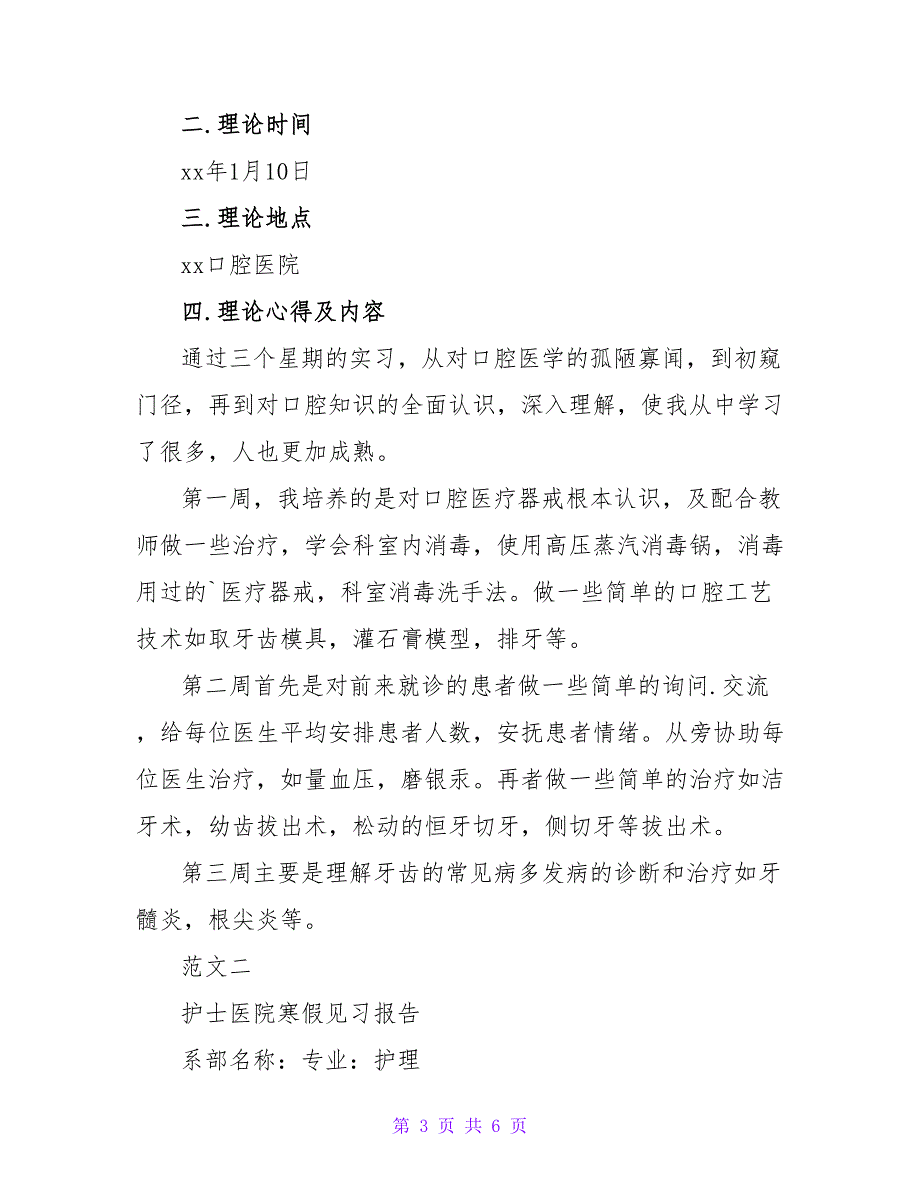 二.理论时间
xx年1月10日
三.理论地点
xx口腔医院
四.理论心得及内容
通过三个星期的实习，从对口腔医学的孤陋寡闻，到初窥
门径，再到对口腔知识的全面认识，深入理解，使我从中学习
了很多，人也更加成熟。
第一周，我培养的是对口腔医疗器戒根本认识，及配合教
师做一些治疗，学会科室内消毒，使用高压蒸汽消毒锅，消毒
用过的`医疗器戒，科室消毒洗手法。做一些简单的口腔工艺
技术如取牙齿模具，灌石膏模型，排牙等。
第二周首先是对前来就诊的患者做一些简单的询问.交流
，给每位医生平均安排患者人数，安抚患者情绪。从旁协助每
位医生治疗，如量血压，磨银汞。再者做一些简单的治疗如洁
牙术，幼齿拔出术，松动的恒牙切牙，侧切牙等拔出术。
第三周主要是理解牙齿的常见病多发病的诊断和治疗如牙
髓炎，根尖炎等。
范文二
护士医院寒假见习报告
系部名称：专业：护理
第 3 页 共 6 页